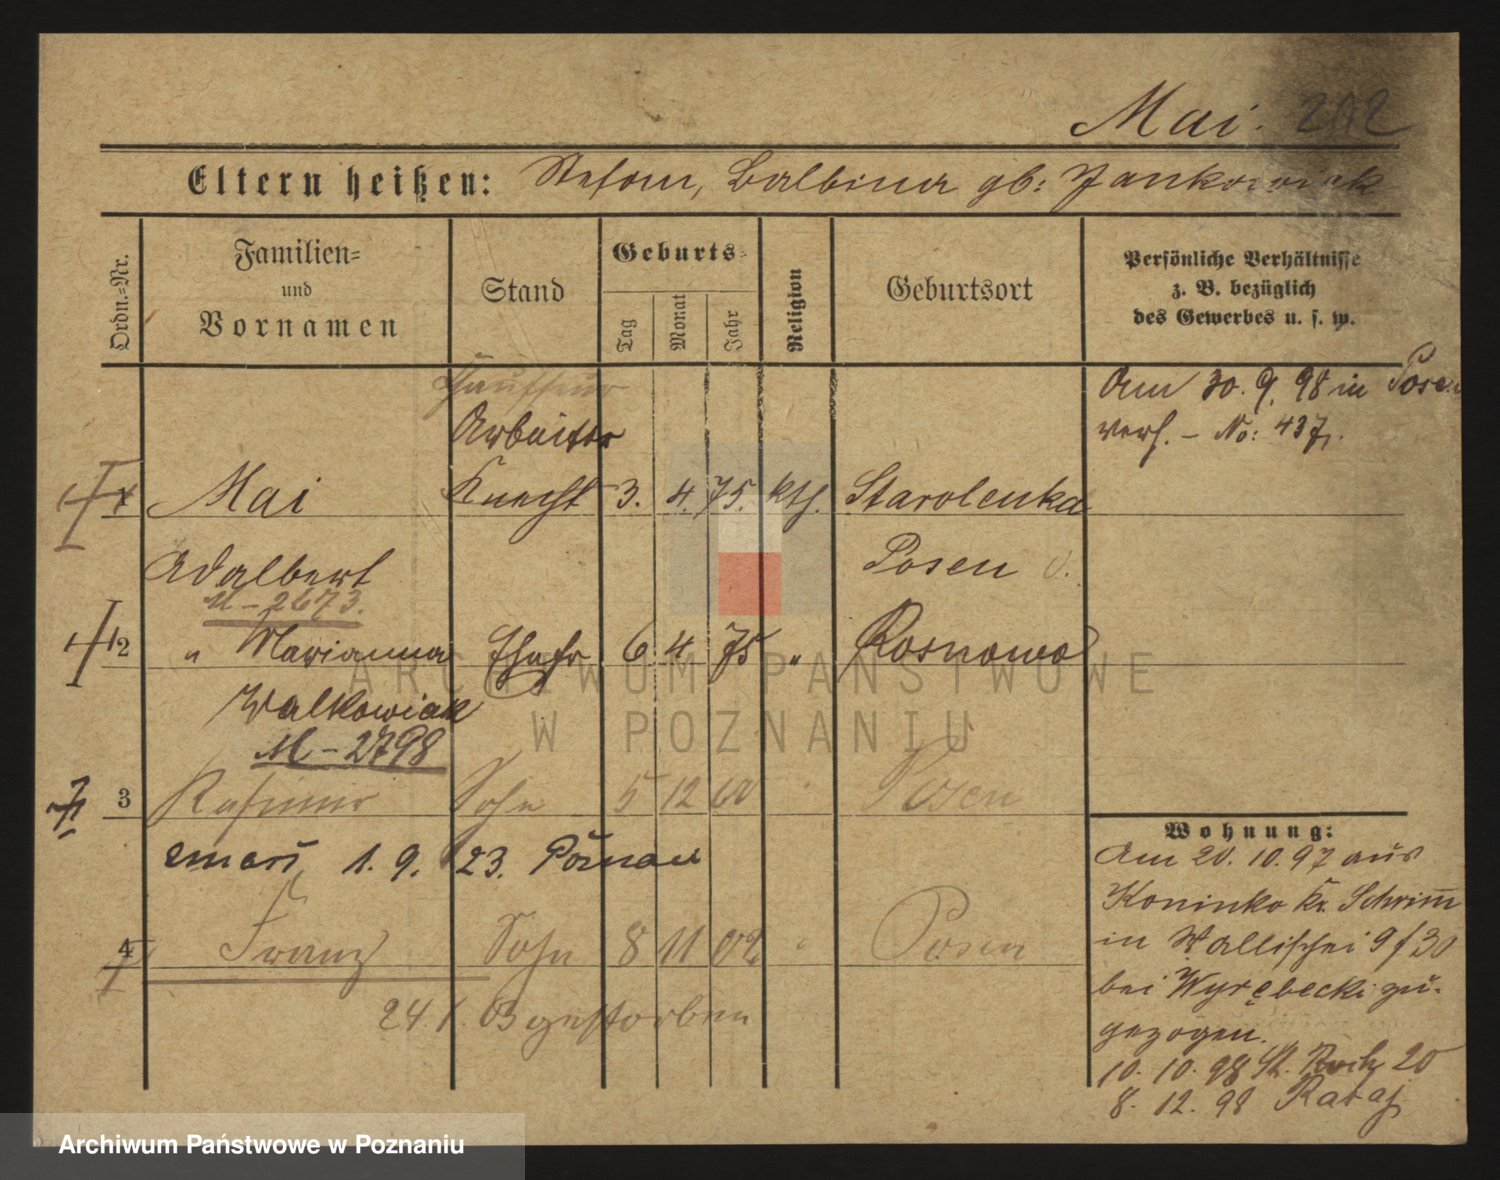 Mai. 212
Eltern heißen: Stefan, Balbina gb: Jankowiak
Ordn.-Nr.
Familien-
und
Vornamen
Stand
Geburts-
Tag
Monat
Jahr
Religion
Geburtsort
Persönliche Verhältnisse
z. B. bezüglich
des Gewerbes u. s. w.
Am 30. 9. 98 in Posen
verh. – No: 437
Arbeiter
1 Mai Knecht 3. 4. 75. kth. Starolenka
Adalbert Posen O.
M – 2673.
2 " Marianna Ehefr 6 4 75 " Rosnowo
Walkowiak
M – 2798
3 Kasimir Sohn 5 12 00 " Posen
zmarł 1. 9. 23. Poznań
4 Franz Sohn 8 11 02 " Posen
24. 1. 03 gestorben
Wohnung:
Am 20. 10. 97 aus
Koninko Kr. Schrimm
in Wallischei 9/30
bei Wyrębecki zu-
gezogen.
10. 10. 98 St. Roch 20
8. 12. 98 Rataj
ARCHIWUM PAŃSTWOWE
W POZNANIU
Archiwum Państwowe w Poznaniu